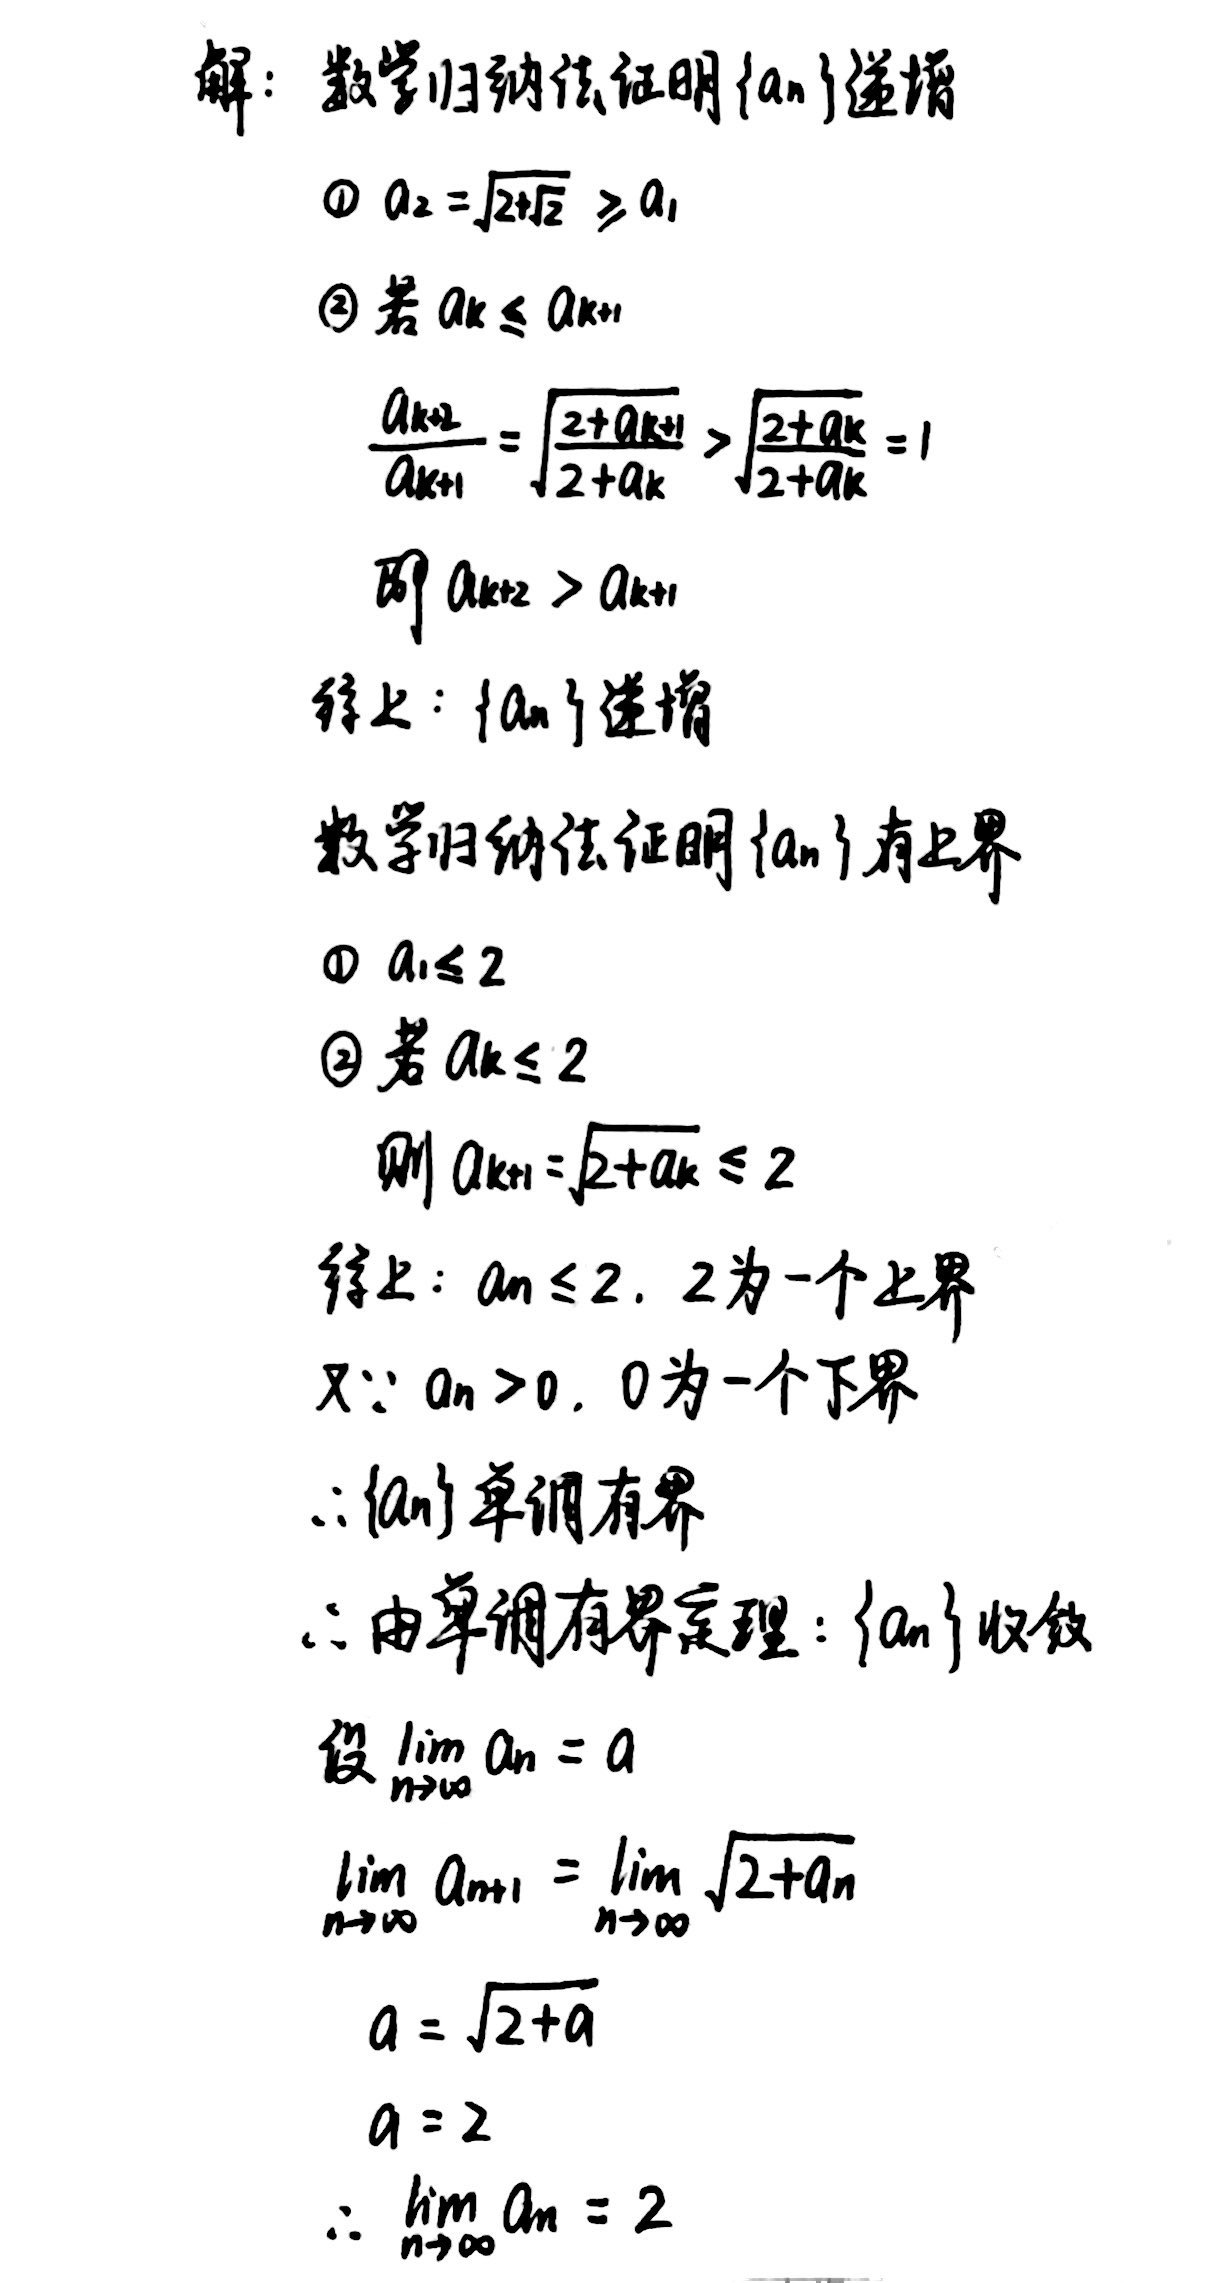 解：数学归纳法证明{aₙ}递增
① a₂ = √(2+√2) ⩾ a₁
② 若 aₖ ≤ aₖ₊₁
aₖ₊₂/aₖ₊₁ = √((2+aₖ₊₁)/(2+aₖ)) > √((2+aₖ)/(2+aₖ)) = 1
即 aₖ₊₂ > aₖ₊₁
综上：{aₙ}递增
数学归纳法证明{aₙ}有上界
① a₁ ≤ 2
② 若 aₖ ≤ 2
则 aₖ₊₁ = √(2+aₖ) ≤ 2
综上：aₙ ≤ 2. 2为一个上界
又∵ aₙ > 0. 0为一个下界
∴{aₙ}单调有界
∴由单调有界定理：{aₙ}收敛
设 lim n→∞ aₙ = a
lim n→∞ aₙ₊₁ = lim n→∞ √(2+aₙ)
a = √(2+a)
a = 2
∴ lim n→∞ aₙ = 2